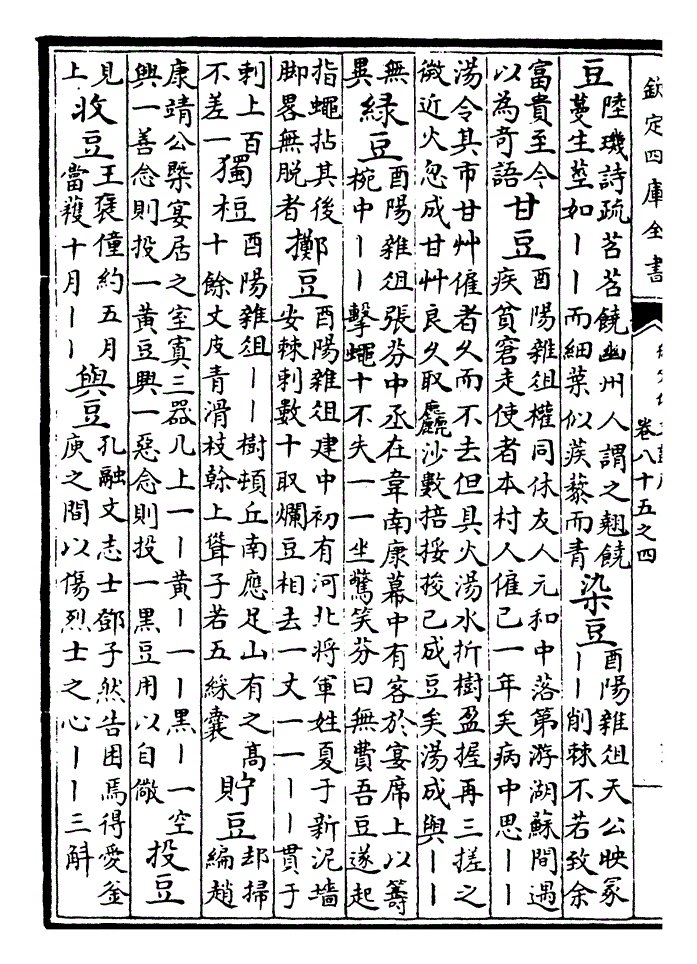 欽定四庫全書
卷八十五之四
豆
陸璣詩疏苕苕饒幽州人謂之翹饒
蔓生莖如丨丨而細葉似蒺藜而青
染豆
酉陽雜俎天公映冢
丨丨削棘不若致余
富貴至今
以為奇語
甘豆
酉陽雜俎權同休友人元和中落第游湖蘇間遇
疾貧窘走使者本村人僱已一年矣病中思丨丨
湯令其市甘艸僱者久而不去但具火湯水折樹盈握再三搓之
微近火忽成甘艸良久取麤沙數掊挼捘已成豆矣湯成與丨丨
無
異
綠豆
酉陽雜俎張芬中丞在韋南康幕中有客於宴席上以籌
椀中丨丨擊蠅十不失一一坐驚笑芬曰無費吾豆遂起
指蠅拈其後
脚畧無脫者
擲豆
酉陽雜俎建中初有河北將軍姓夏于新泥墻
安棘刺數十取爛豆相去一丈一一丨丨貫于
刺上百
不差一
獨梪
酉陽雜俎丨丨樹頓丘南應足山有之高
十餘丈皮青滑枝幹上聳子若五綵囊
貯豆
却掃
編趙
康靖公槩宴居之室寘三器几上一丨黃丨一丨黑丨一空
興一善念則投一黃豆興一惡念則投一黑豆用以自儆
投豆
見
上
收豆
王褒僮約五月
當穫十月丨丨
與豆
孔融文志士鄧子然告困焉得愛釜
庾之間以傷烈士之心丨丨三斛